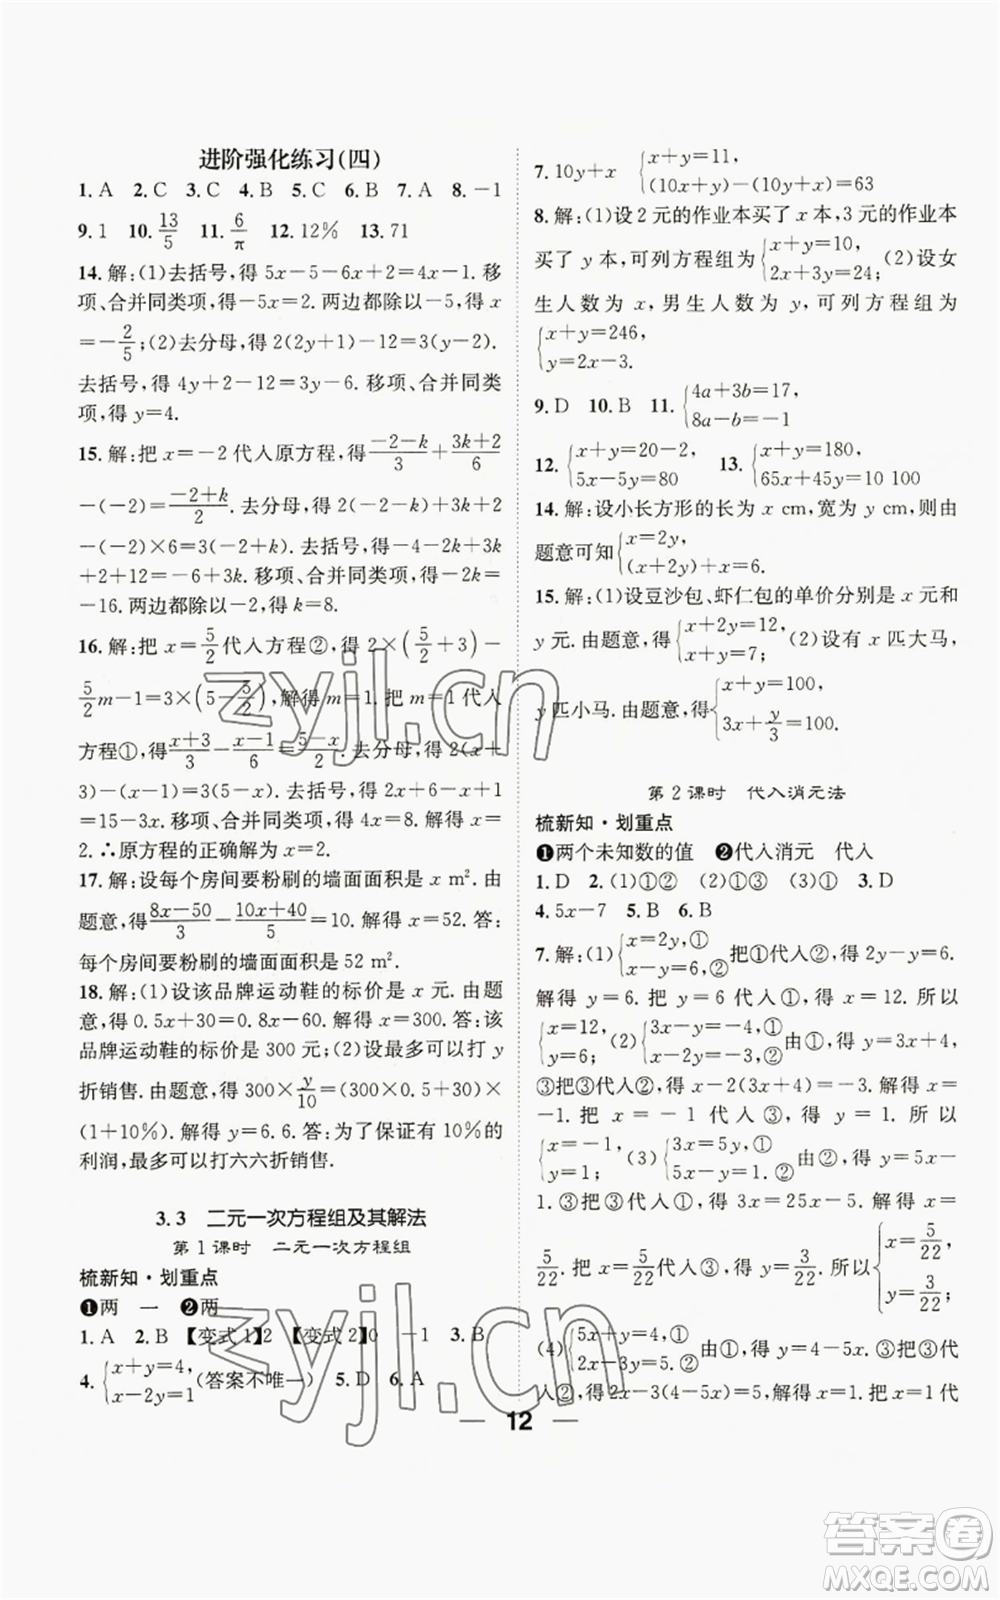 进阶强化练习(四)
1. A 2. C 3. C 4. B 5. C 6. B 7. A 8. －1
9. 1 10. 13/5 11. 6/π 12. 12% 13. 71
14. 解:(1)去括号,得 5x－5－6x＋2＝4x－1. 移
项、合并同类项,得－5x＝2. 两边都除以－5,得 x
＝－2/5;(2)去分母,得 2(2y＋1)－12＝3(y－2).
去括号,得 4y＋2－12＝3y－6. 移项、合并同类
项,得 y＝4.
15. 解:把 x＝－2 代入原方程,得 (－2－k)/3＋(3k＋2)/6
－(－2)＝(－2＋k)/2. 去分母,得 2(－2－k)＋3k＋2
－(－2)×6＝3(－2＋k). 去括号,得－4－2k＋3k
＋2＋12＝－6＋3k. 移项、合并同类项,得－2k＝
－16. 两边都除以－2,得 k＝8.
16. 解:把 x＝5/2代入方程②,得 2×(5/2＋3)－
5/2m－1＝3×(5－5/2),解得 m＝1. 把 m＝1 代入
方程①,得(x＋3)/3－(x－1)/6＝(5－x)/2. 去分母,得 2(x＋
3)－(x－1)＝3(5－x). 去括号,得 2x＋6－x＋1
＝15－3x. 移项、合并同类项,得 4x＝8. 解得 x＝
2. ∴原方程的正确解为 x＝2.
17. 解:设每个房间要粉刷的墙面面积为 x m². 由
题意,得(8x－50)/3－(10x＋40)/5＝10. 解得 x＝52. 答:
每个房间要粉刷的墙面面积为 52 m².
18. 解:(1)设该品牌运动鞋的标价是 x 元. 由题
意,得 0.5x＋30＝0.8x－60. 解得 x＝300. 答:该
品牌运动鞋的标价是 300 元;(2)设最多可以打 y
折销售. 由题意,得 300×y/10＝(300×0.5＋30)×
(1＋10%). 解得 y＝6.6. 答:为了保证有 10%的
利润,最多可以打六六折销售.
3.3 二元一次方程组及其解法
第 1 课时 二元一次方程组
梳新知·划重点
❶两 一 ❷两
1. A 2. B 【变式 1】2 【变式 2】0 －1 3. B
4. {x＋y＝4, x－2y＝1 (答案不唯一) 5. D 6. A
7. 10y＋x {x＋y＝11, (10x＋y)－(10y＋x)＝63
8. 解:(1)设 2 元的作业本买了 x 本,3 元的作业本
买了 y 本,可列方程组为{x＋y＝10, 2x＋3y＝24;(2)设女
生人数为 x,男生人数为 y,可列方程组为
{x＋y＝246, y＝2x－3.
9. D 10. B 11. {4a＋3b＝17, 8a－b＝－1
12. {x＋y＝20－2, 5x－5y＝80 13. {x＋y＝180, 65x＋45y＝10 100
14. 解:设小长方形的长为 x cm,宽为 y cm,则由
题意可知{x＝2y, (x＋2y)＋x＝6.
15. 解:(1)设豆沙包、虾仁包的单价分别是 x 元和
y 元. 由题意,得{x＋2y＝12, x＋y＝7;(2)设有 x 匹大马,
y 匹小马. 由题意,得{x＋y＝100, 3x＋y/3＝100.
第 2 课时 代入消元法
梳新知·划重点
❶两个未知数的值 ❷代入消元 代入
1. D 2. (1)①② (2)②① (3)① 3. D
4. 5x－7 5. B 6. B
7. 解:(1){x＝2y,① x－y＝6,②把①代入②,得 2y－y＝6.
解得 y＝6. 把 y＝6 代入①,得 x＝12. 所以
{x＝12, y＝6; (2){3x－y＝－4,① x－2y＝－3.②由①,得 y＝3x＋4.
③把③代入②,得 x－2(3x＋4)＝－3. 解得 x＝
－1. 把 x＝－1 代入③,得 y＝1. 所以
{x＝－1, y＝1; (3){3x＝5y,① 2x＝3y＋1.②由②,得 x＝5y－
1. ③把③代入①,得 3x＝25x－5. 解得 x＝
5/22. 把 x＝5/22代入③,得 y＝3/22. 所以{x＝5/22, y＝3/22;
(4){5x＋y＝4,① 2x－3y＝5.②由①,得 y＝4－5x. ③把③代
入②,得 2x－3(4－5x)＝5. 解得 x＝1. 把 x＝1 代
12
zyjl.cn
zyjl.cn
答案圈
MXQE.COM